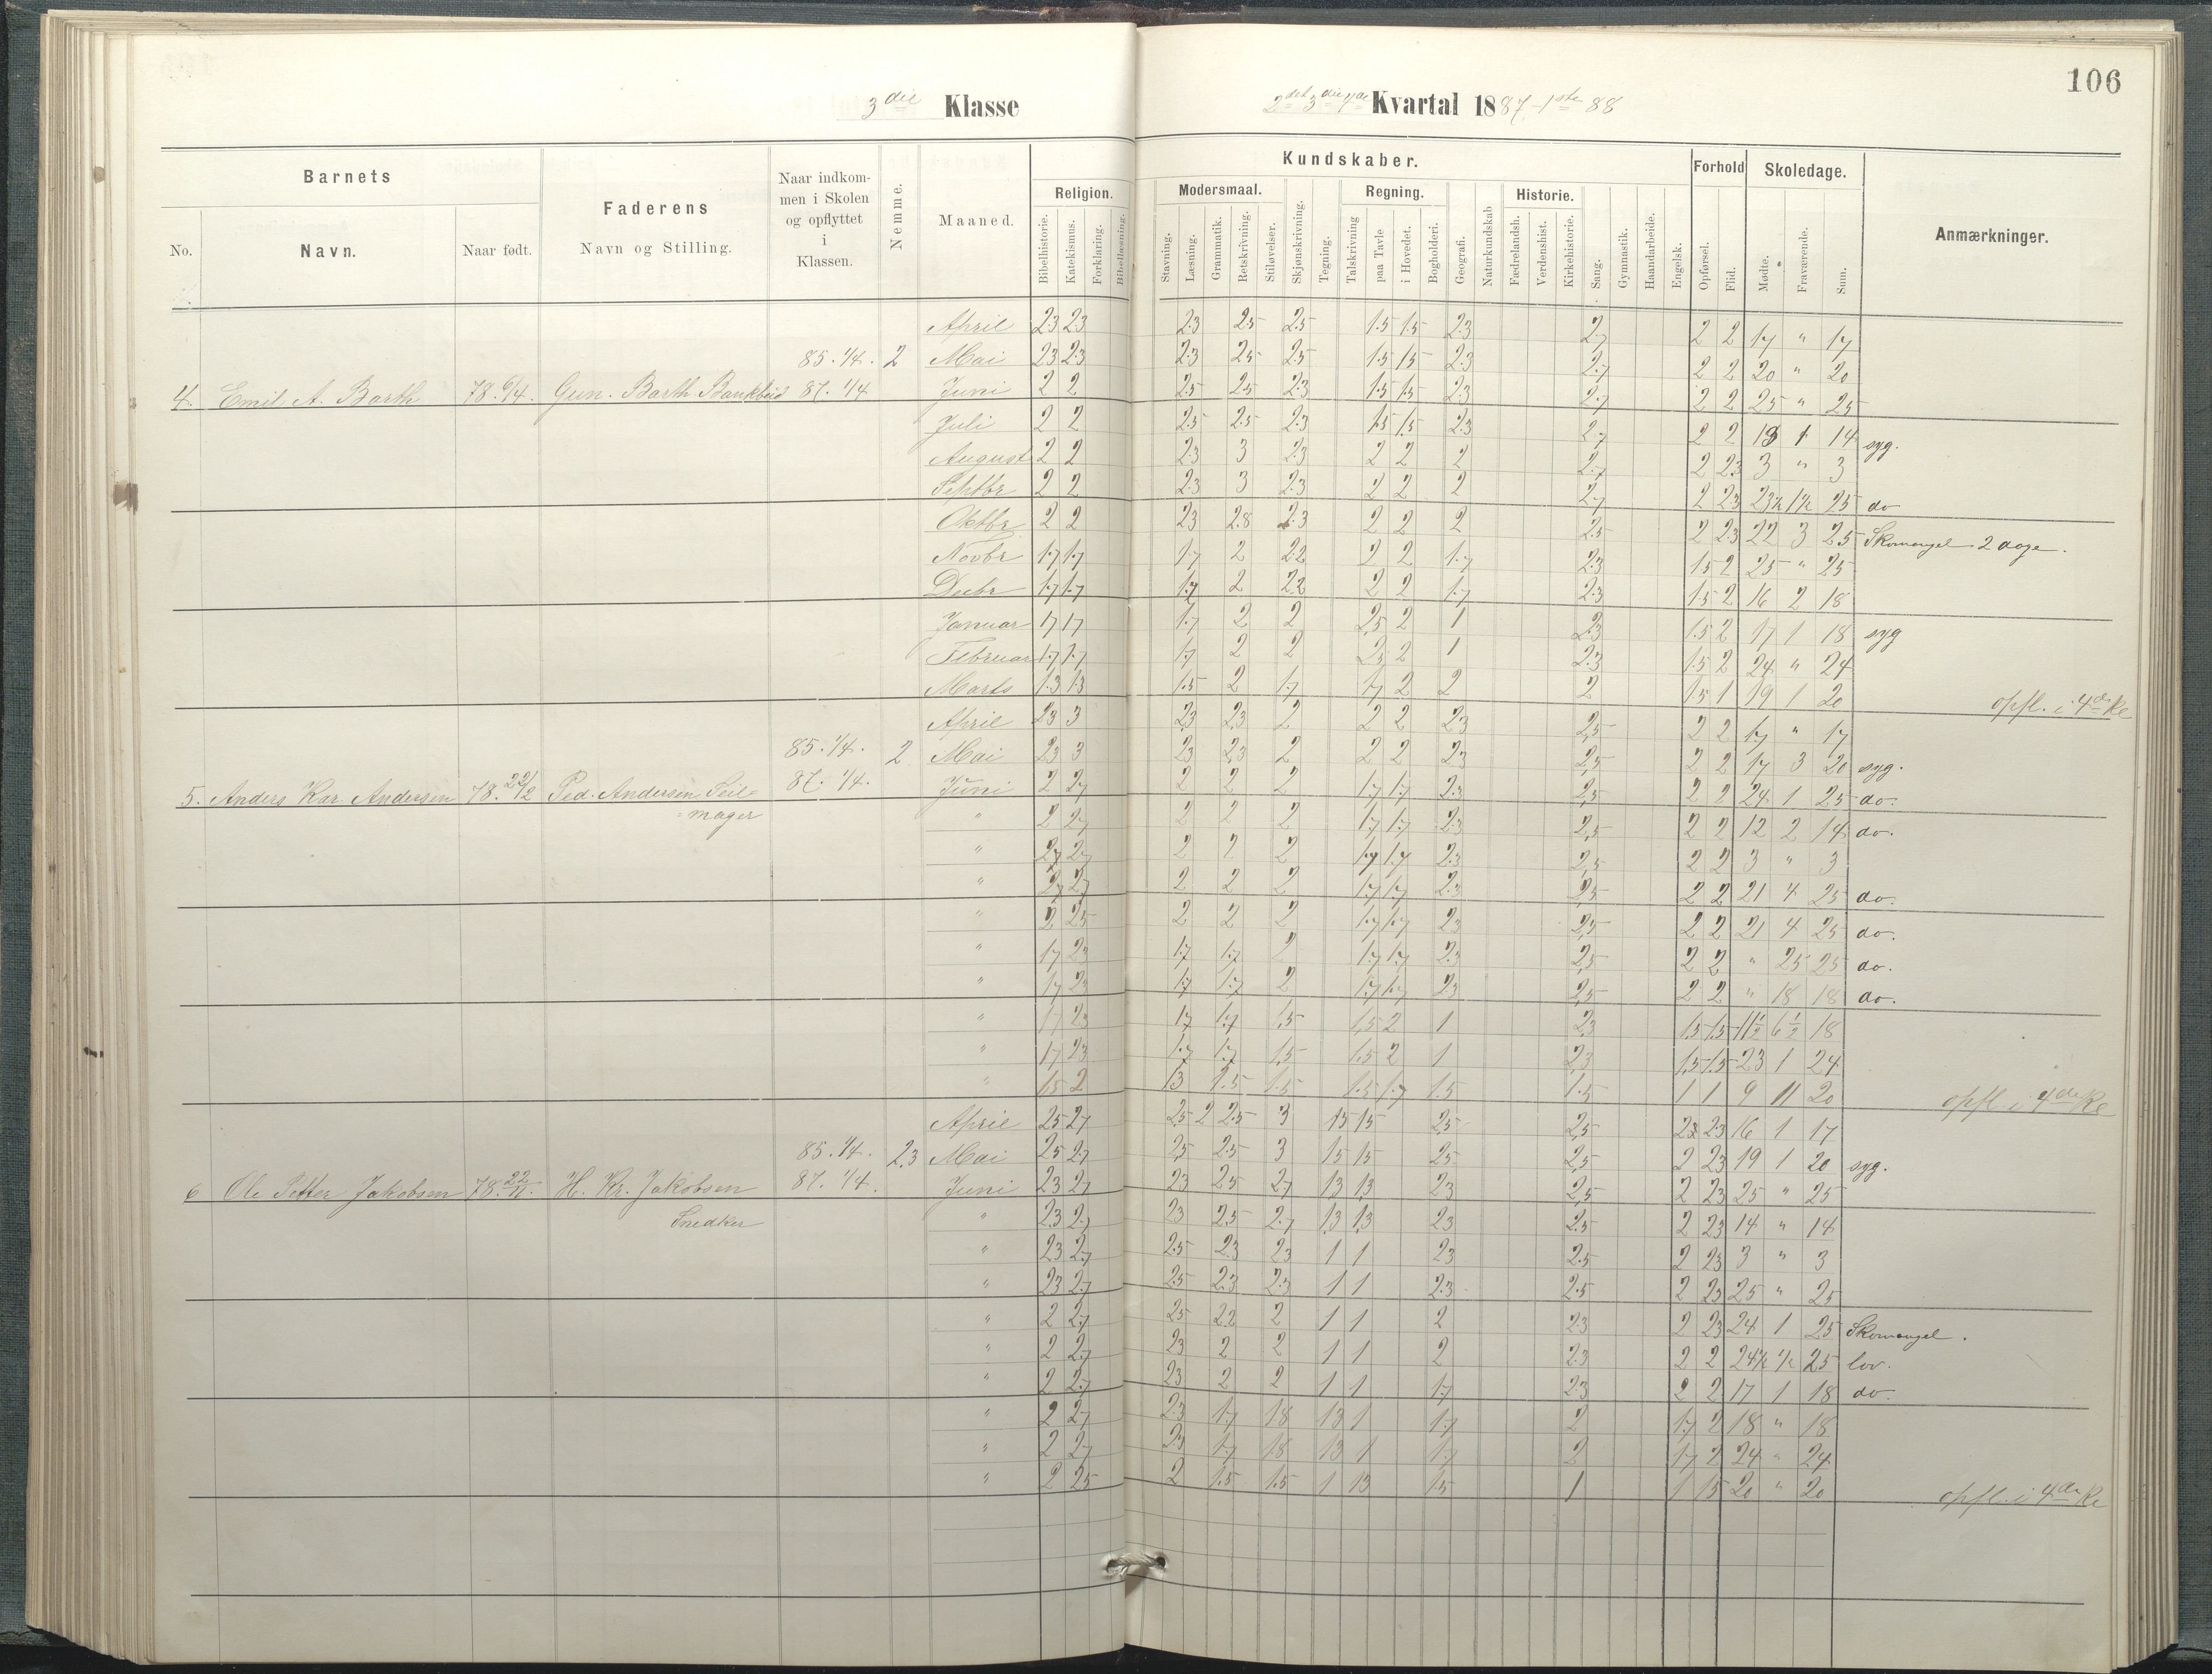 106
3die Klasse
2det 3die 4de Kvartal 1887-1ste 88
Barnets
No. Navn. Naar født.
Faderens
Navn og Stilling.
Naar indkom-
men i Skolen
og opflyttet
i
Klassen.
Nemme.
Maaned.
Kundskaber.
Religion.
Bibelhistorie. Katekismus. Forklaring. Bibellæsning.
Modersmaal.
Stavning. Læsning. Grammatik. Retskrivning. Stiløvelser.
Skjønskrivning. Tegning.
Regning.
Talskrivning paa Tavle i Hovedet. Bogholderi.
Geografi. Naturkundskab
Historie.
Fædrelandsh. Verdenshist. Kirkehistorie.
Sang. Gymnastik. Haandarbeide. Engelsk.
Forhold
Opførsel. Flid.
Skoledage.
Mødte. Fraværende. Sum.
Anmærkninger.
April 2.3 2.3 2.3 2.5 2.5 1.5 1.5 2.3 2.7 2 2 17 " 17
85. 1/4. 2 Mai 2.3 2.3 2.3 2.5 2.5 1.5 1.5 2.3 2.7 2 2 20 " 20
4. Emil A. Barth 78. 6/4. Gun. Barth Bankbud 87. 1/4 Juni 2 2 2.5 2.5 2.3 1.5 1.5 2.3 2.7 2 2 25 " 25
Juli 2 2 2.5 2.5 2.3 1.5 1.5 2.3 2.7 2 2 13 1 14 syg.
August 2 2 2.3 3 2.3 2 2 2 2.7 2 2.3 3 " 3
Septbr 2 2 2.3 3 2.3 2 2 2 2.7 2 2.3 23½ 1½ 25 do
Oktbr 2 2 2.3 2.8 2.3 2 2 2 2.5 2 2.3 22 3 25 Skomangel 2 dage.
Novbr 1.7 1.7 1.7 2 2.2 2 2 1.7 2.3 1.5 2 25 " 25
Decbr 1.7 1.7 1.7 2 2.2 2 2 1.7 2.3 1.5 2 16 2 18
Januar 1.7 1.7 1.7 2 2 2.5 2 1 2.3 1.5 2 17 1 18 syg
Februar 1.7 1.7 1.7 2 2 2.5 2 1 2.3 1.5 2 24 " 24
Marts 1.3 1.3 1.5 2 1.7 1.7 2 2 2 1.5 1 19 1 20 opfl. i 4de Kl
April 2.3 3 2.3 2.3 2 2 2 2.3 2.5 2 2 17 " 17
85. 1/4. 2 Mai 2.3 3 2.3 2.3 2 2 2 2.3 2.5 2 2 17 3 20 syg.
5. Anders Kar. Andersen 78. 22/2 Ped. Andersen Seil- 87. 1/4. Juni 2 2.7 2 2 2 1.7 1.7 2.3 2.5 2 2 24 1 25 do.
mager " 2 2.7 2 2 2 1.7 1.7 2.3 2.5 2 2 12 2 14 do.
" 2.7 2.7 2 2 2 1.7 1.7 2.3 2.5 2 2 3 " 3
" 2.7 2.7 2 2 2 1.7 1.7 2.3 2.5 2 2 21 4 25 do.
" 2 2.5 2 2 2 1.7 1.7 2.3 2.5 2 2 21 4 25 do.
" 1.7 2.3 1.7 1.7 2 1.7 1.7 2.3 2.5 2 2 " 25 25 do.
" 1.7 2.3 1.7 1.7 2 1.7 1.7 2.3 2.5 2 2 " 18 18 do.
" 1.7 2.3 1.7 1.7 1.5 1.5 2 1 2.3 1.5 1.5 11½ 6½ 18
" 1.7 2.3 1.7 1.7 1.5 1.5 2 1 2.3 1.5 1.5 23 1 24
" 1.5 2 1.3 1.5 1.5 1.5 1.7 1.5 1.5 1 1 9 11 20 opfl. i 4de Kl
April 2.5 2.7 2.5 2 2.5 3 1.5 1.5 2.5 2.5 2.3 2.3 16 1 17
85. 1/4. 2.3 Mai 2.5 2.7 2.5 2.5 3 1.5 1.5 2.5 2.5 2 2.3 19 1 20 syg.
6 Ole Petter Jakobsen 78. 22/11. H. Kr. Jakobsen 87. 1/4. Juni 2.3 2.7 2.3 2.5 2.7 1.3 1.3 2.3 2.5 2 2.3 25 " 25
Snedker " 2.3 2.7 2.3 2.5 2.7 1.3 1.3 2.3 2.5 2 2.3 14 " 14
" 2.3 2.7 2.5 2.3 2.3 1 1 2.3 2.5 2 2.3 3 " 3
" 2.3 2.7 2.5 2.3 2.3 1 1 2.3 2.5 2 2.3 25 " 25
" 2 2.7 2.5 2.2 2 1 1 2 2.3 2 2.3 24 1 25 Skomangel.
" 2 2.7 2.3 2 2 1 1 2 2.3 2 2 24½ ½ 25 lov.
" 2 2.7 2.3 2 2 1 1 1.7 2.3 2 2 17 1 18 do.
" 2 2.7 2.3 1.7 1.8 1.3 1 1.7 2 1.7 2 18 " 18
" 2 2.7 2.3 1.7 1.8 1.3 1 1.7 2 1.7 2 24 " 24
" 2 2.5 2 1.5 1.5 1 1.3 1.5 1 1 1.5 20 " 20 opfl. i 4de Kl